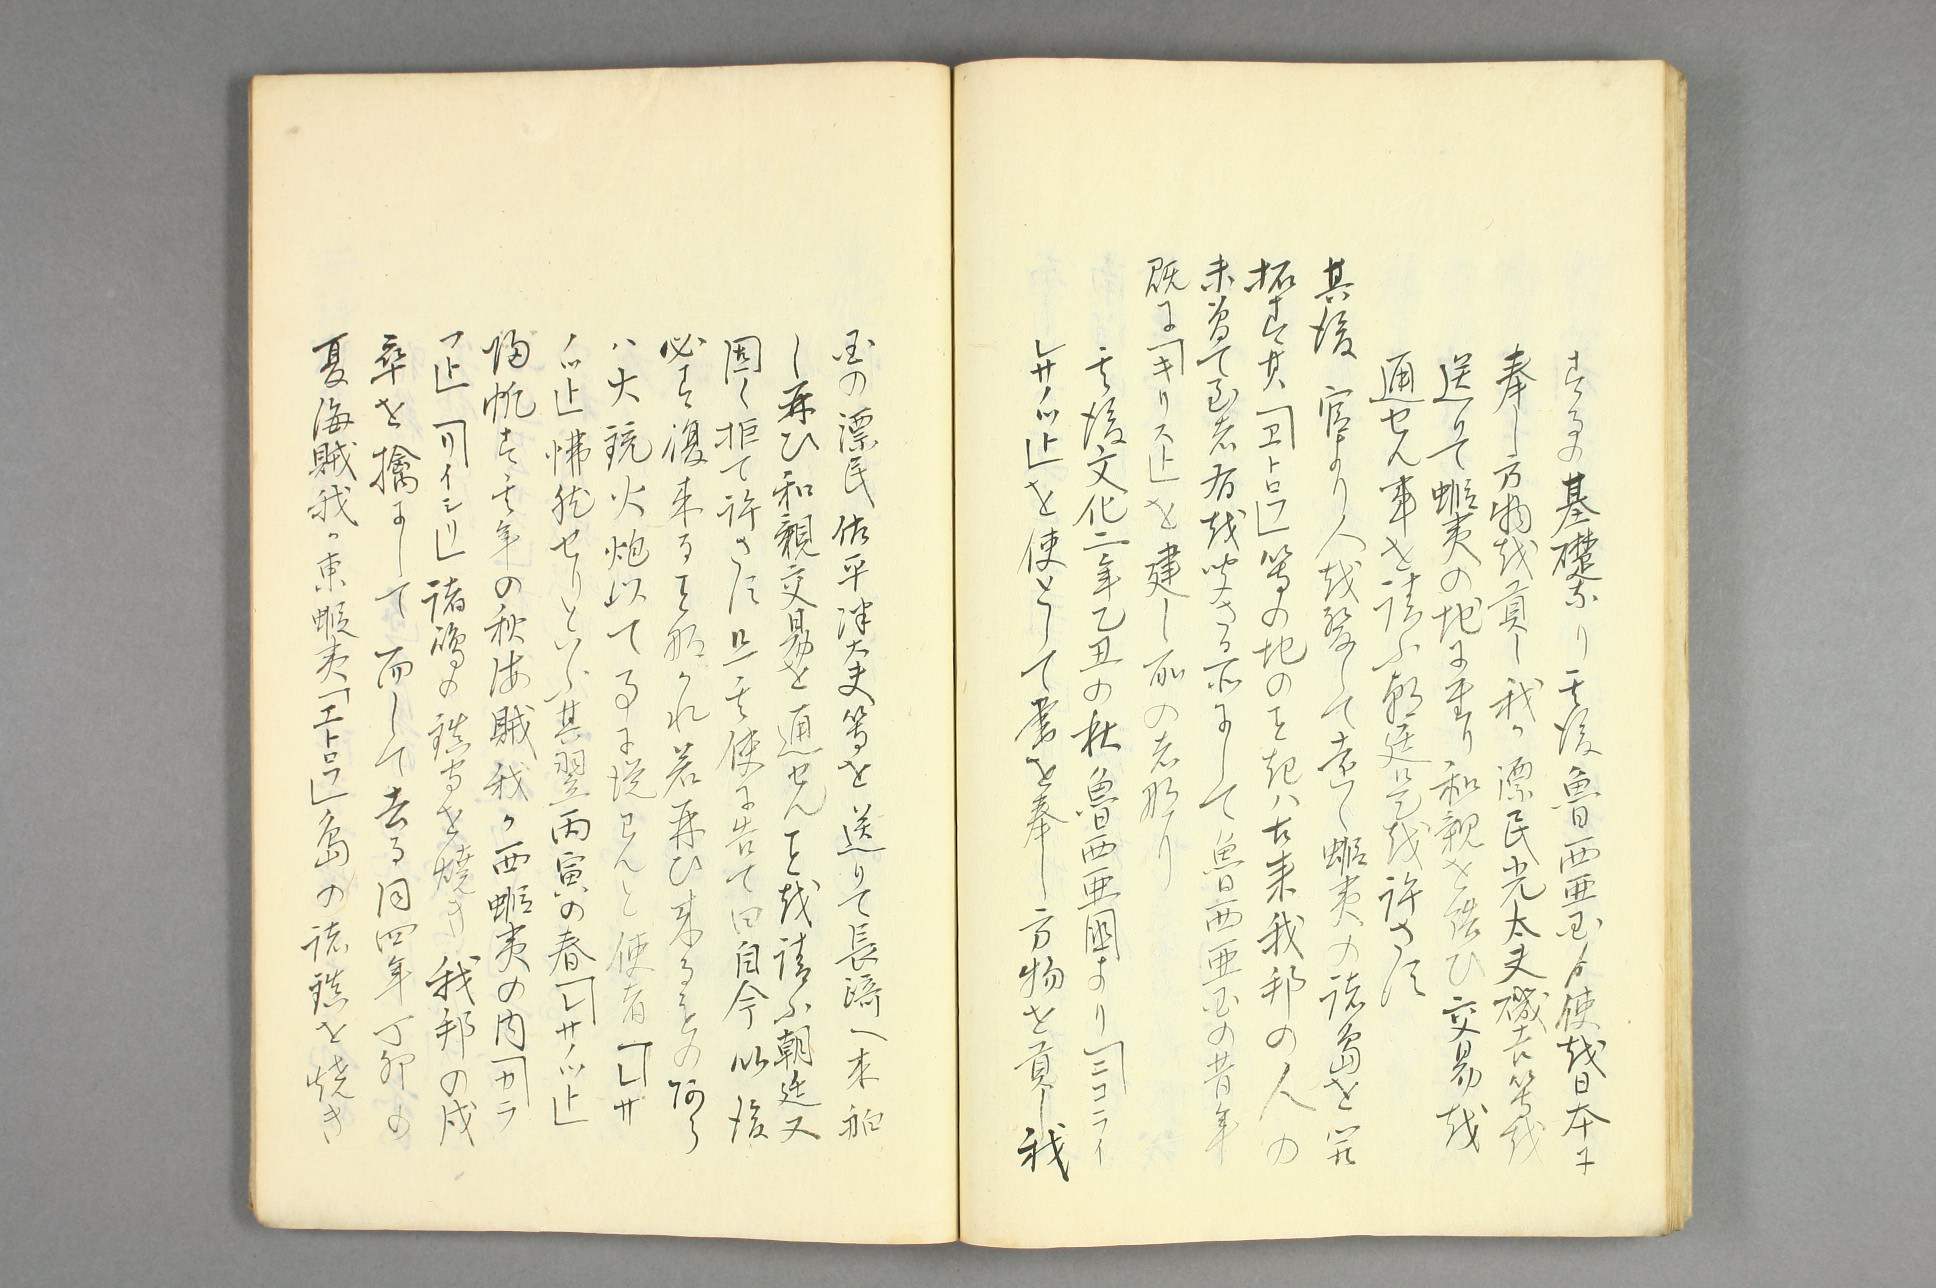 するの基礎なり其後魯西亜国ゟ使越日本に
奉し方物越貢し我か漂民光太夫磯吉等越
送りて蝦夷の地に来り和親を結ひ交易越
通せん事を請ふ朝廷是越許さす
其後　官より人越発して遠く蝦夷の諸島を開
拓す其「ヱトロフ」等の地のを起ハ古来我邦の人の
未曽て至る者有越聞さる所にして魯西亜国の昔年
既に「キリスト」を建し所の者なり
其後文化二年乙丑の秋魯西亜国より「ニコライ
レサノツト」を使として書を奉し方物を貢し我
国の漂民佐平津太夫等を送りて長崎へ来舶
し再ひ和親交易を通せんを越請ふ朝廷又
固く拒て許さす且其使に告て曰自今以後
必す復来るを勿かれ若再ひ来るをのあら
ハ大銃火炮以て事に従はんと使者「レサ
ノツト」怫然せりといふ其翌丙寅の春「レサノツト」
帰帆す其年の秋海賊我か西蝦夷の内「カラ
フト」「リイシリ」諸島の鎮守を焼き我邦の戍
卒を擒にして而して去る同四年丁卯の
夏海賊我か東蝦夷「エトロフ」島の諸鎮を焼き